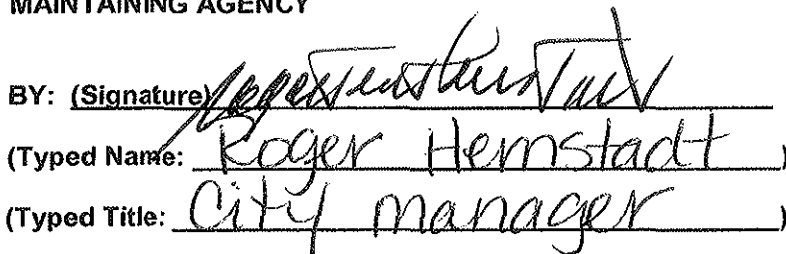 MAINTAINING AGENCY
BY: (Signature)
(Typed Name: Roger Hernstadt )
(Typed Title: City manager )